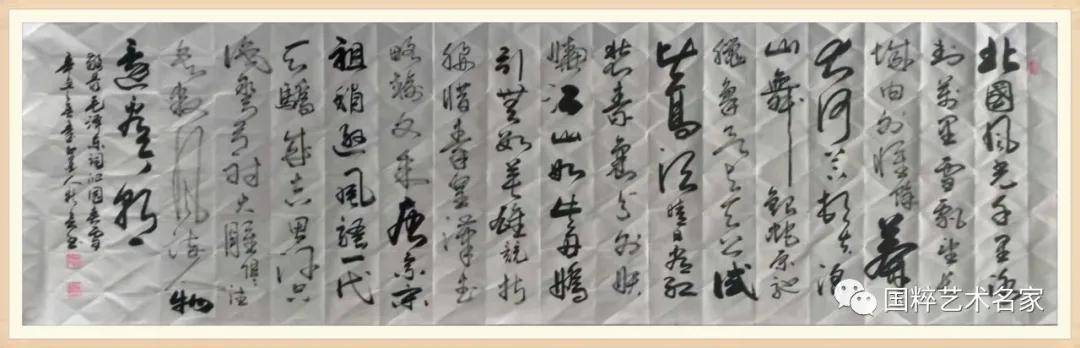 北國風光千里冰
封萬里雪飄望長
城内外惟餘莽
大河上下頓失滔
山舞銀蛇原馳
蠟象欲与天公試
比高須晴日看紅
裝素裹分外妖
嬈江山如此多嬌
引無數英雄競折
腰惜秦皇漢武
略輸文采唐宗宋
祖稍遜風騷一代
天驕成吉思汗只
識彎弓射大雕俱往
矣數風流人物
還看今朝
毛泽东词沁园春雪
辛丑
国粹艺术名家